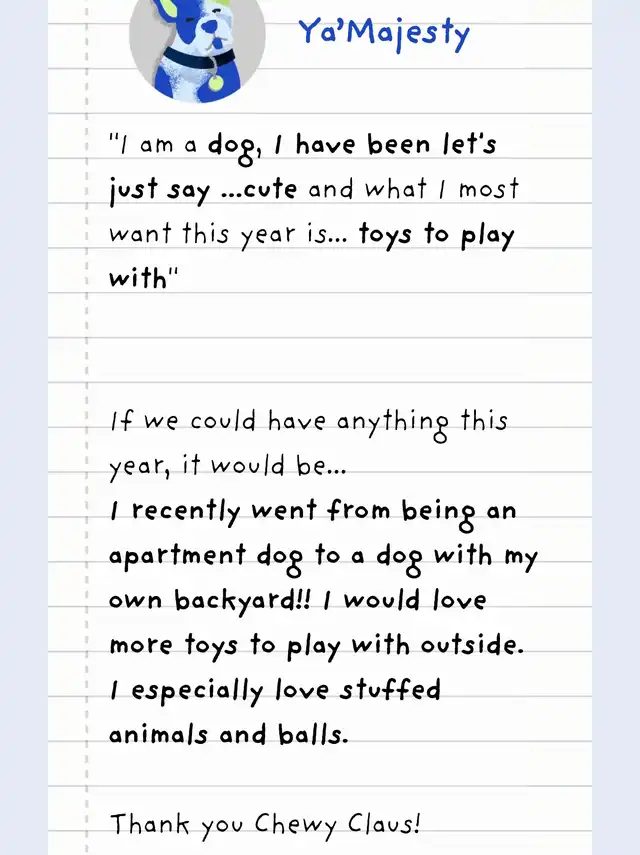 Ya'Majesty
"I am a dog, I have been let's
just say ...cute and what I most
want this year is... toys to play
with"
If we could have anything this
year, it would be...
I recently went from being an
apartment dog to a dog with my
own backyard!! I would love
more toys to play with outside.
I especially love stuffed
animals and balls.
Thank you Chewy Claus!